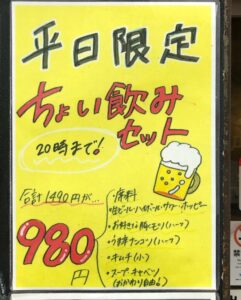 平日限定
ちょい飲み
セット
20時まで!
合計1490円が…
980
円
・生ビール・ハイボール・サワー・ホッピー
・お好きな豚モツ(ハーフ)
(ハーフ)
・キムチ(小)
・スープキャベツ
(おかわり自由)